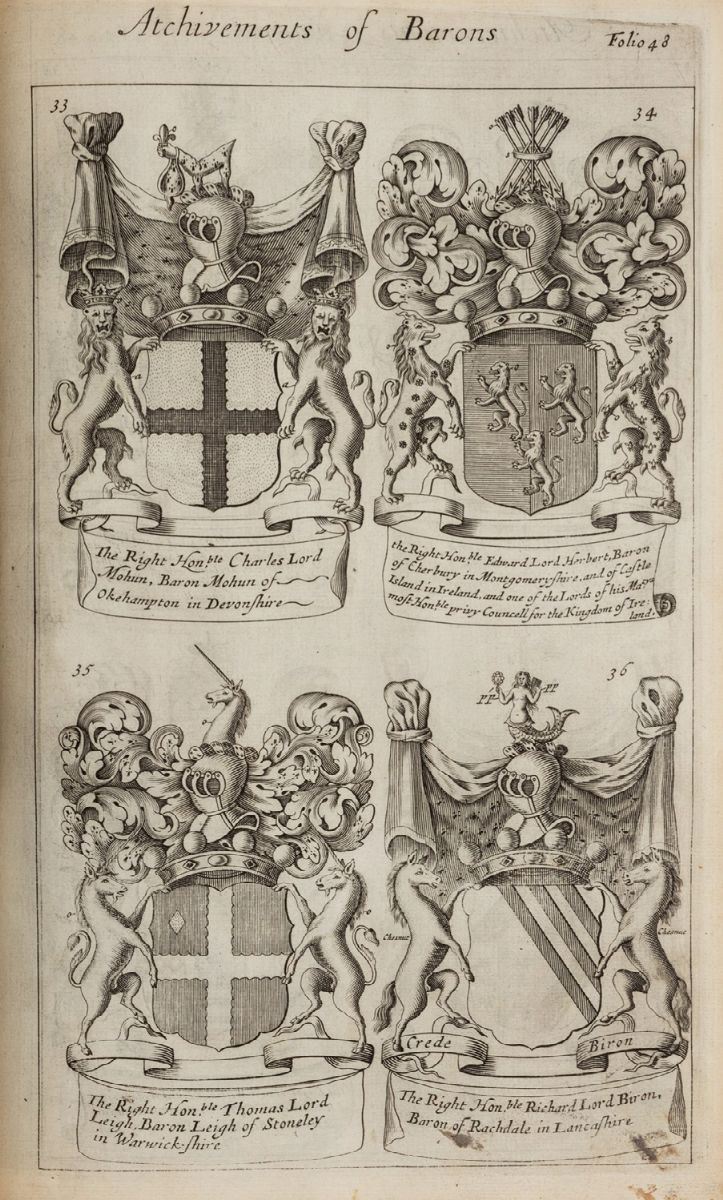 Atchivements of Barons
Folio 48
33
34
a
a
The Right Hon.ble Charles Lord
Mohun, Baron Mohun of
Okehampton in Devonshire
the Right Hon.ble Edward Lord Herbert, Baron
of Cherbury in Montgomeryshire, and of Castle
Island in Ireland, and one of the Lords of his Ma.ties
most Hon.ble privy Councell for the Kingdom of Ire:
land.
35
36
pp
pp
Chesnut
Chesnut
Crede Biron
The Right Hon.ble Thomas Lord
Leigh, Baron Leigh of Stoneley
in Warwick-shire
The Right Hon.ble Richard Lord Biron,
Baron of Rachdale in Lancashire